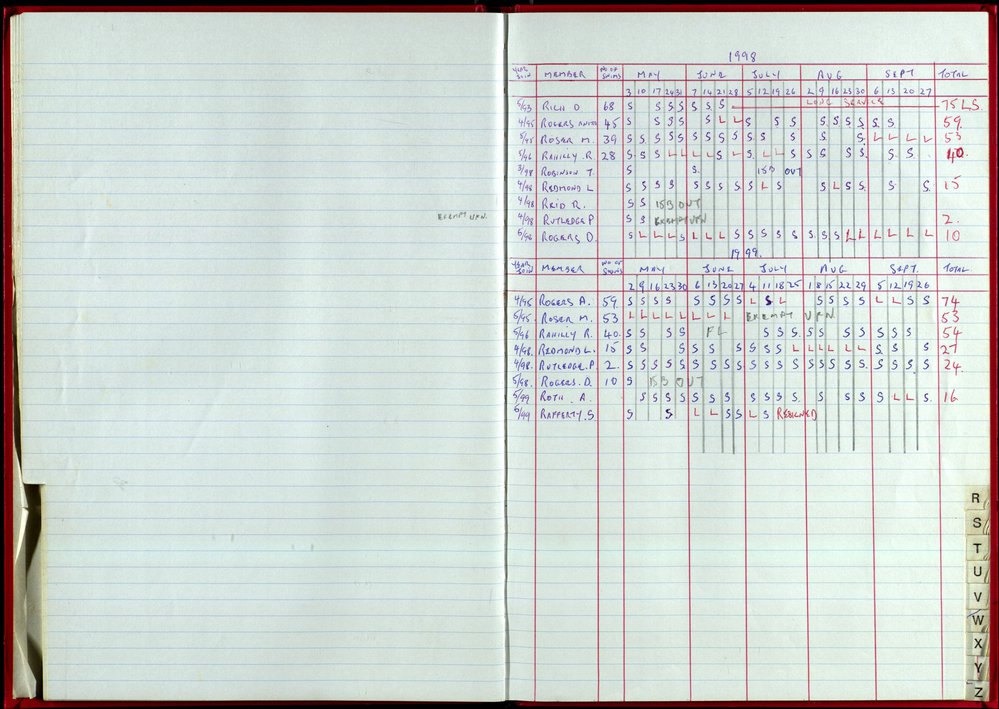 EXEMPT UFN.
1998
YEAR JOIN MEMBER NO OF SWIMS MAY JUNE JULY AUG SEPT TOTAL
3 10 17 24 31 7 14 21 28 5 12 19 26 2 9 16 23 30 6 13 20 27
5/93 RICH D 68 S S S S S S S LONG SERVICE 75 LS.
4/95 ROGERS 45 S S S S S L L S S S S S S S S S S 59.
5/95 ROSER M. 39 S S S S S S S S S S S S S S L L L L 53
5/96 RAHILLY. R. 28 S S S L L L L S L S L L S S S S S S S 40.
3/98 ROBINSON T. S S. 15B OUT
4/98 REDMOND L S S S S S S S S S S L S S L S S S S. 15
4/98 REID R. S S 15B OUT
4/98 RUTLEDGE P S S EXEMPT UFN 2.
5/96 ROGERS D. S L L L S L L L S S S S S S S S L L L L L L L 10
1999.
YEAR JOIN MEMBER NO OF SWIMS MAY JUNE JULY AUG SEPT. TOTAL
2 9 16 23 30 6 13 20 27 4 11 18 25 1 8 15 22 29 5 12 19 26
4/95 ROGERS A. 59. S S S S S S S S L S L S S S S L L S S 74
5/95 ROSER M. 53 L L L L L L L L EXEMPT UFN 53
5/96 RAHILLY R. 40. S S S S FL S S S S S S S S S S 54
4/98. REDMOND L. 15 S S S S S S S S S L L L L L L S S S 27
4/98. RUTLEDGE. P 2. S S S S S S S S S S S S S S S S S S S S S S 24.
5/98. ROGERS. D. 10 S 15B OUT
5/99 ROTH. A. S S S S S S S S S S S S S S S S L L S. 16
6/99 RAFFERTY. S S S L L S S L S RESIGNED
R
S
T
U
V
W
X
Y
Z